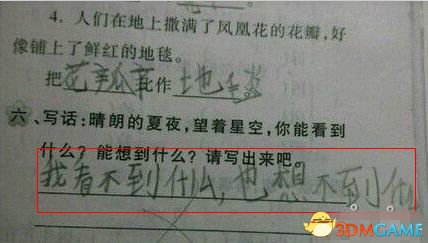 4. 人们在地上撒满了凤凰花的花瓣,好
像铺上了鲜红的地毯。
把花辛瓜辛比作土地毛毯
六、写话:晴朗的夏夜,望着星空,你能看到
什么?能想到什么?请写出来吧。
我看不到什么,也想不到什么
3DMGAME